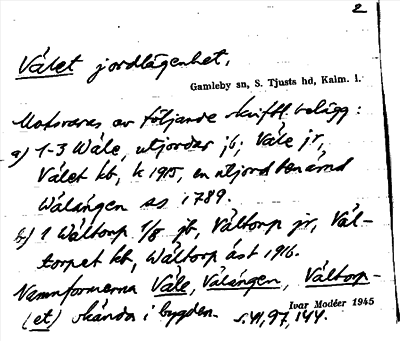 2
Válet jordlägenhet.
Gamleby sn, S. Tjusts hd, Kalm. l.
Motsvaras av följande skriftl. belägg:
a) 1-3 Wåle, utjordar jb; Våle jr,
Válet kb, k 1915, en utjord benämnd
Wålängen ss 1789.
b) 1 Wåltorp 1/8 jb, Våltorp jr, Vål-
torpet kb, Wåltorp ást 1916.
Namnformerna Våle, Válängen, Våltorp-
(et) okända i bygden.
Ivar Modéer 1945
s. 41, 97, 144.